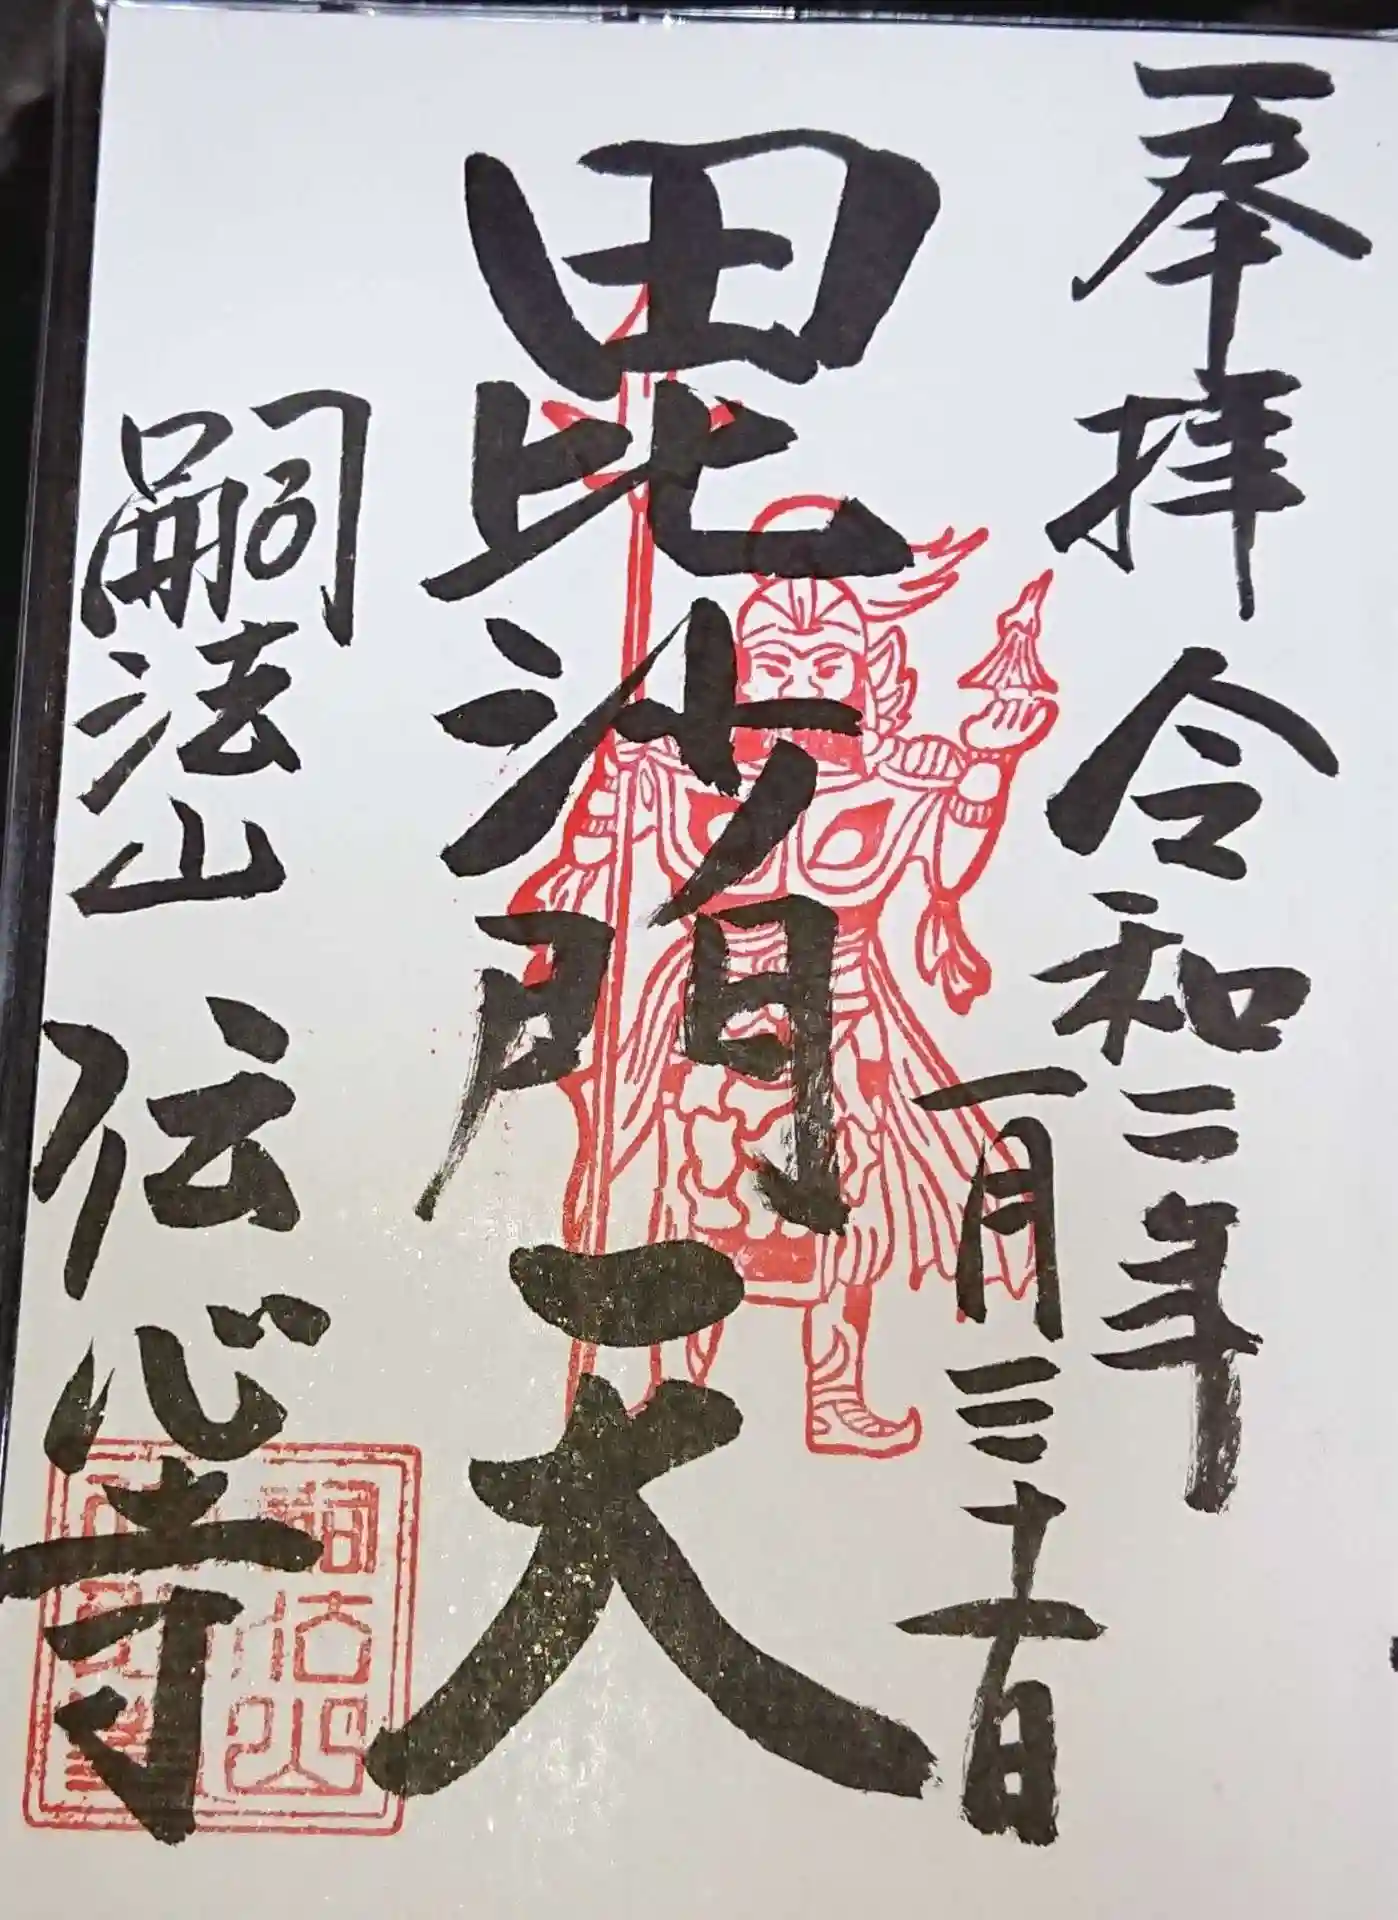 奉拝 令和二年
一月三十一日
毘沙門天
嗣法山 伝心寺
嗣法山